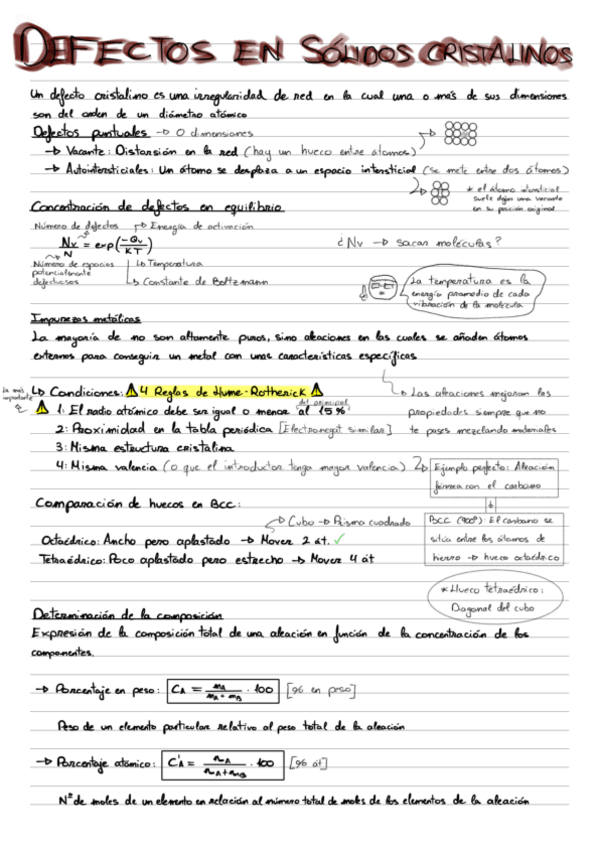 DEFECTOS EN SÓLIDOS CRISTALINOS
Un defecto cristalino es una irregularidad de red en la cual una o más de sus dimensiones
son del orden de un diámetro atómico
Defectos puntuales → 0 dimensiones
→ Vacante: Distorsión en la red (hay un hueco entre átomos)
→ Autointersticiales: Un átomo se desplaza a un espacio intersticial (se mete entre dos átomos)
* el átomo intersticial
suele dejar una vacante
en su posición original
Concentración de defectos en equilibrio
Número de defectos
Energía de activación
Nv/N = exp(-Qv/KT)
¿Nv → sacan moléculas?
Número de espacios
potencialmente
defectuosos
Temperatura
Constante de Boltzmann
La temperatura es la
energía promedio de cada
vibración de la molécula
Impurezas metálicas
La mayoría de no son altamente puros, sino aleaciones en las cuales se añaden átomos
externos para conseguir un metal con unas características específicas
La más
importante
Condiciones: 4 Reglas de Hume-Rotherick
1: El radio atómico debe ser igual o menor al 15%
del principal
2: Proximidad en la tabla periódica [Electronegat similar]
3: Misma estructura cristalina
4: Misma valencia (o que el introductor tenga mayor valencia)
Las altraciones mejoran las
propiedades siempre que no
te pases mezclando materiales
Ejemplo perfecto: Aleación
férrea con el carbono
BCC (900º): El carbono se
sitúa entre los átomos de
hierro → hueco octaédrico
Comparación de huecos en BCC:
Cubo → Prisma cuadrado
Octaédrico: Ancho pero aplastado → Mover 2 át. ✓
Tetraédrico: Poco aplastado pero estrecho → Mover 4 át
* Hueco tetraédrico:
Diagonal del cubo
Determinación de la composición
Expresión de la composición total de una aleación en función de la concentración de los
componentes.
→ Porcentaje en peso: CA = mA/(mA + mB) · 100 [% en peso]
Peso de un elemento particular relativo al peso total de la aleación
→ Porcentaje atómico: C'A = nA/(nA + nB) · 100 [% át]
Nº de moles de un elemento en relación al número total de moles de los elementos de la aleación